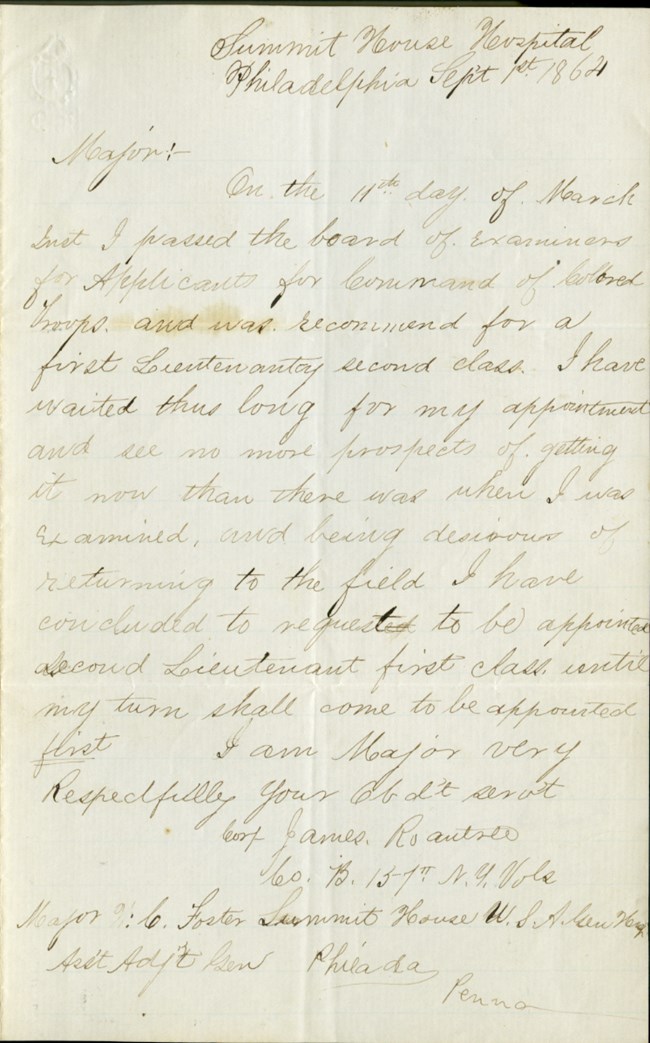 Summit House Hospital
Philadelphia Sept 1st 1864
Major:-
On the 11th day of March
Inst I passed the board of Examiners
for Applicants for Command of Colored
Troops. and was recommend for a
first Lieutenantcy second class. I have
waited thus long for my appointment
and see no more prospects of getting
it now than there was when I was
Examined, and being desirous of
returning to the field I have
concluded to requested to be appointed
second Lieutenant first class. until
my turn shall come to be appointed
first I am Major very
Respectfully Your Obd't serv't
Corp James. Roantree
Co. B. 157th N.Y. Vols
Major C. Foster Summit House U.S.A. Gen Hosp
Ass't Adj't Gen Philada
Penna